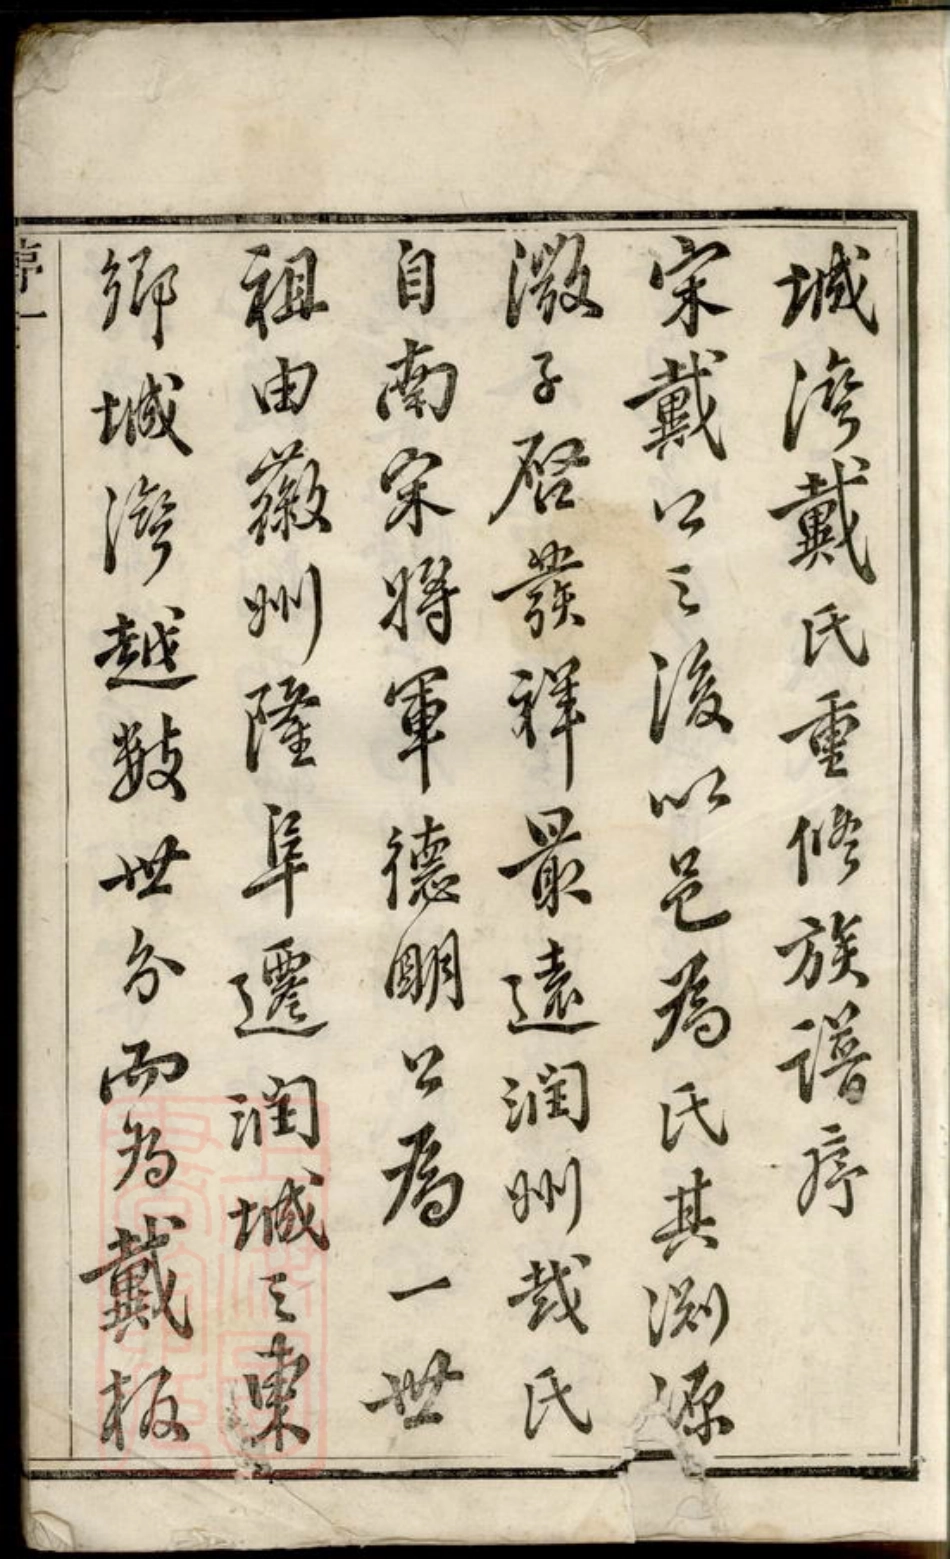 城灣戴氏重修族譜序
宋戴公之後以邑為氏其淵源
微子啓發祥最遠潤州戴氏
自南宋將軍德明公為一世
祖由徽州隆阜遷潤城之東
鄉城灣越數世分而為戴板
序一